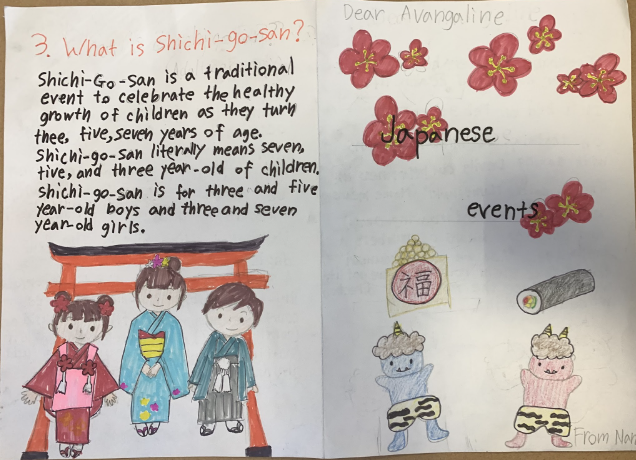 3. What is Shichi-go-san?
Shichi-Go-San is a traditional
event to celebrate the healthy
growth of children as they turn
thee, five, seven years of age.
Shichi-go-san literally means seven,
five, and three year-old of children.
Shichi-go-san is for three and five
year-old boys and three and seven
year-old girls.
Dear Avangaline
Japanese
events
福